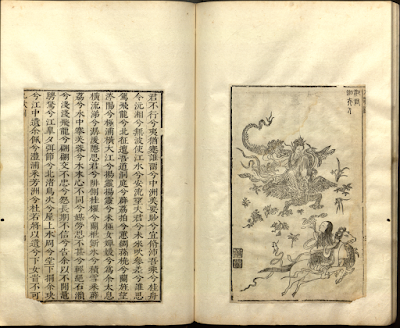 君不行兮夷猶蹇誰留兮中洲美要眇兮宜脩沛吾乘兮桂舟
令沅湘兮無波使江水兮安流望夫君兮未來吹參差兮誰思
駕飛龍兮北征邅吾道兮洞庭薜荔拍兮蕙綢蓀橈兮蘭旌望
涔陽兮極浦橫大江兮揚靈揚靈兮未極女嬋媛兮為余太息
橫流涕兮潺湲隱思君兮陫側桂櫂兮蘭枻斲冰兮積雪采薜
荔兮水中搴芙蓉兮木末心不同兮媒勞恩不甚兮輕絕石瀨
兮淺淺飛龍兮翩翩交不忠兮怨長期不信兮告余以不閒鼂
騁騖兮江皋夕弭節兮北渚鳥次兮屋上水周兮堂下捐余玦
兮江中遺余佩兮澧浦采芳洲兮杜若將以遺兮下女旹不可